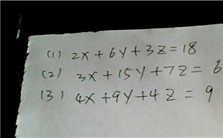 (1) 2x+6y+3z=18
(2) 3x+15y+7z= 6
(3) 4x+9y+4z = 9